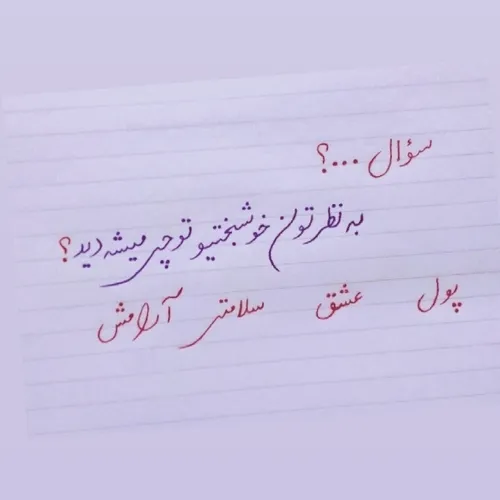 سؤال ...؟
به نظرتون خوشبختیو تو چی میشه دید؟
پول عشق سلامتی آرامش